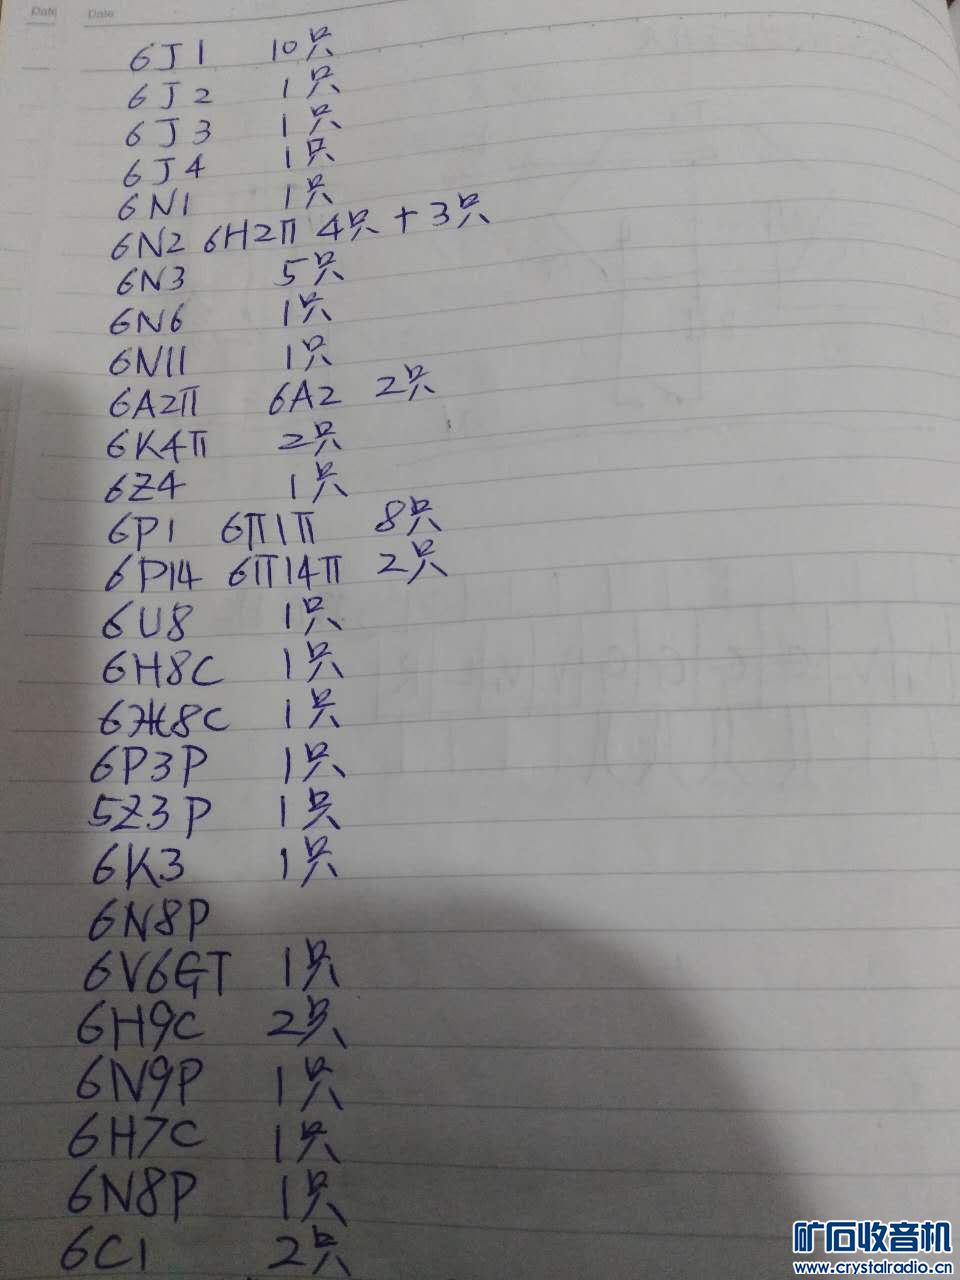 Date Date
6J1 10只
6J2 1只
6J3 1只
6J4 1只
6N1 1只
6N2 6H2П 4只+3只
6N3 5只
6N6 1只
6N11 1只
6A2П 6A2 2只
6K4П 2只
6Z4 1只
6P1 6П1П 8只
6P14 6П14П 2只
6U8 1只
6H8C 1只
6Ж8C 1只
6P3P 1只
5Z3P 1只
6K3 1只
6N8P
6V6GT 1只
6H9C 2只
6N9P 1只
6H7C 1只
6N8P 1只
6C1 2只
矿石收音机
www.crystalradio.cn